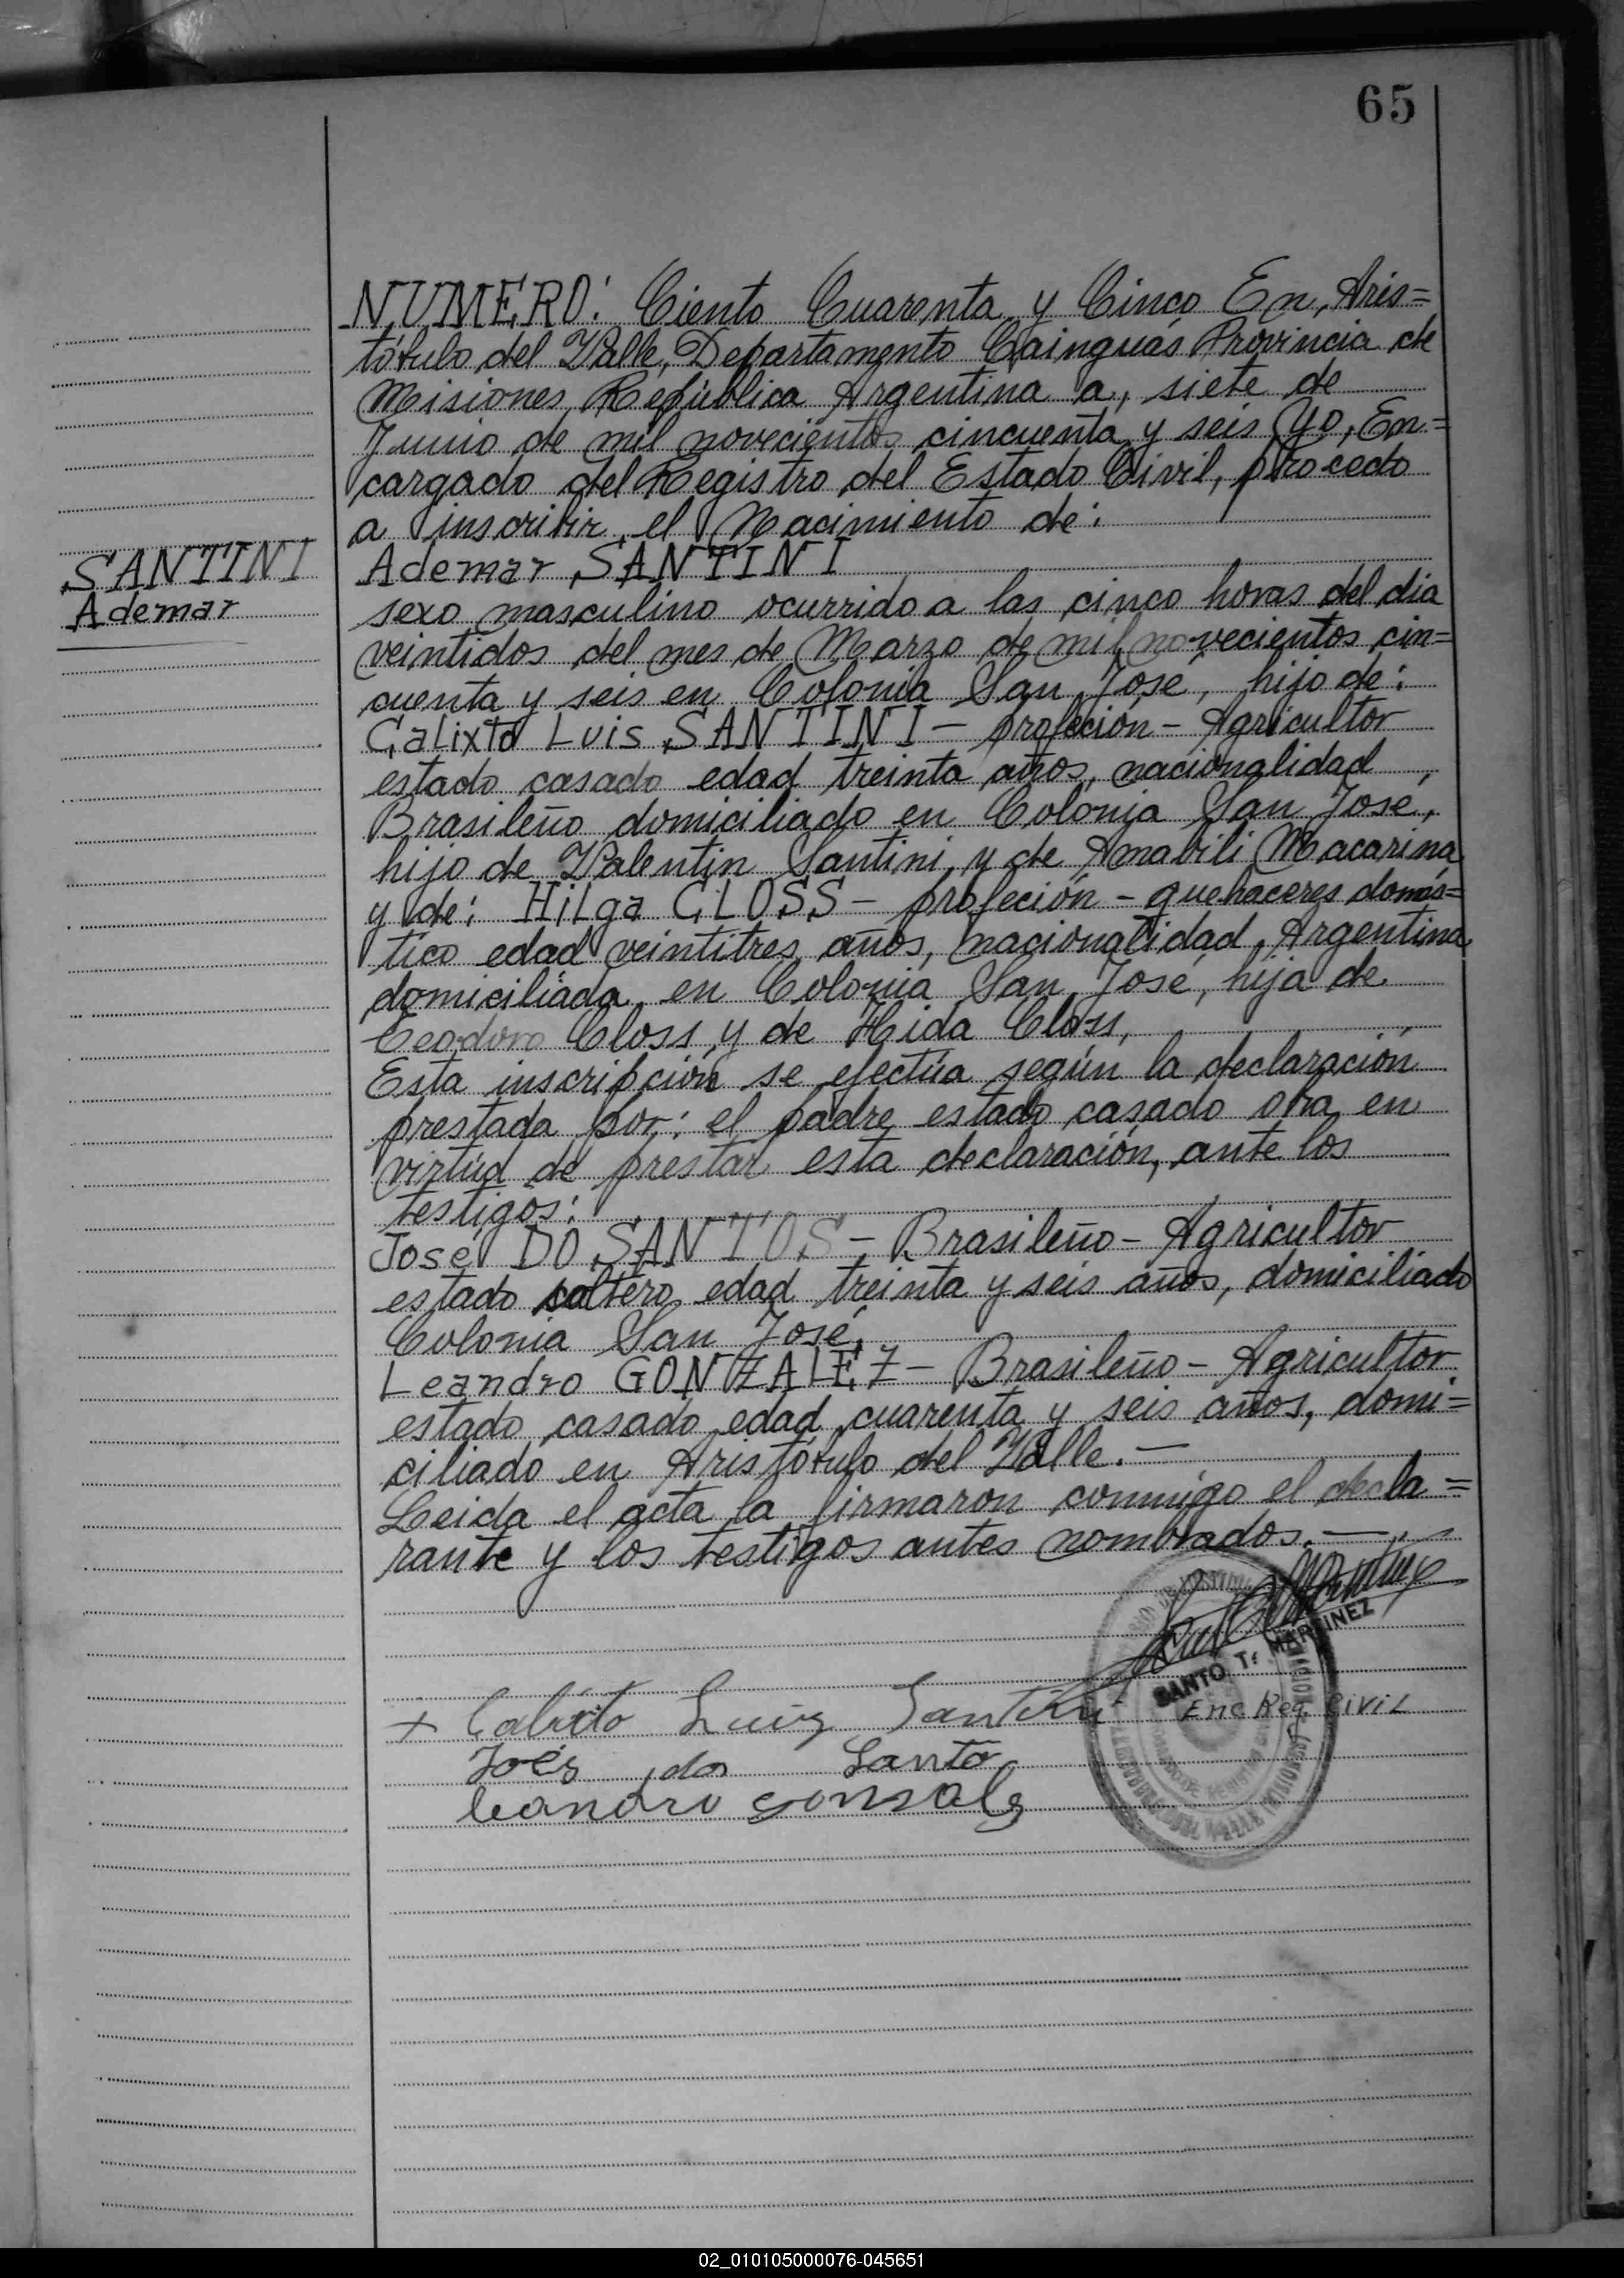 65
NUMERO: Ciento Cuarenta y Cinco En, Aris=
tóbulo del Valle, Departamento Cainguás Provincia de
Misiones, República Argentina a, siete de
Junio de mil novecientos cincuenta y seis Yo, En=
cargado del Registro del Estado Civil, procedo
a inscribir el Nacimiento de:
SANTINI
Ademar
Ademar SANTINI
sexo masculino ocurrido a las cinco horas del dia
veintidos del mes de Marzo de mil novecientos cin=
cuenta y seis en Colonia San José, hijo de:
Calixto Luis SANTINI - profeción - Agricultor
estado casado edad treinta años, nacionalidad
Brasileño domiciliado en Colonia San Jose,
hijo de Valentin Santini, y de Amabili Macarina
y de: Hilga CLOSS - profeción - quehaceres domés=
tico edad veintitres años, nacionalidad, Argentina
domiciliada en Colonia San José, hija de
Teodoro Closs y de Hida Closs,
Esta inscripción se efectúa según la declaración
prestada por: el padre estado casado obra en
virtúd de prestar esta declaración, ante los
testigos:
José DO SANTOS - Brasileño - Agricultor
estado soltero edad treinta y seis años, domiciliado
Colonia San José,
Leandro GONZALEZ - Brasileño - Agricultor
estado casado edad cuarenta y seis años, domi=
ciliado en Aristóbulo del Valle. —
Leida el acta la firmaron conmigo el decla=
rante y los testigos antes nombrados. —
SANTO T. MARTINEZ
Enc Reg. Civil
+ Calixto Luiz Santini
Joés do Santo
leandro gonsales
02_010105000076-045651